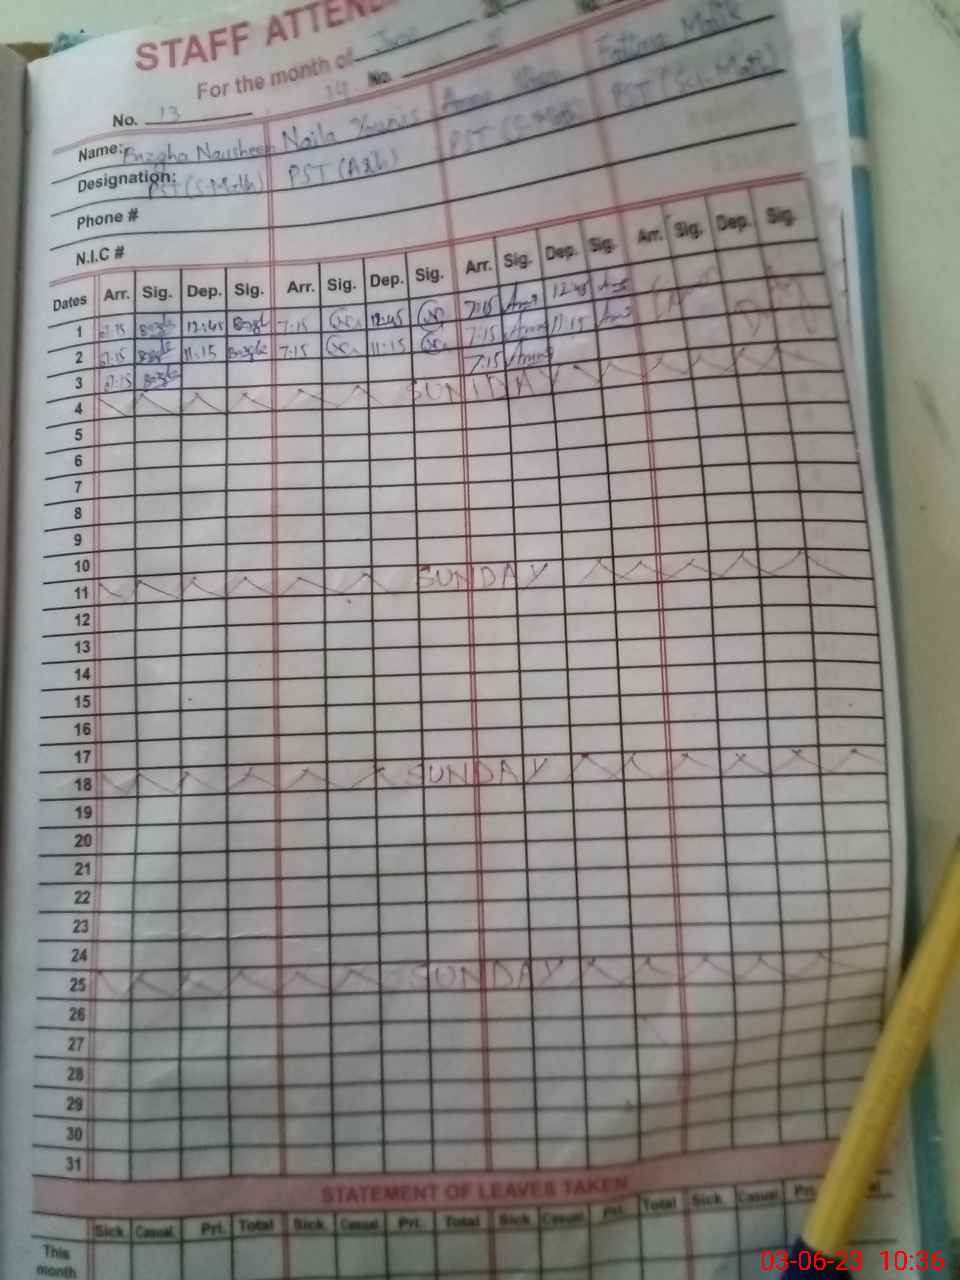 STAFF ATTEN
For the month of June
No. 13 14 No.
Name: Bazgha Nausheen Naila Younis Fatima Malik
Designation: PST (S-Math) PST (A&h) PST (S-Math) PST (Sci-Math)
Phone #
N.I.C #
Dates Arr. Sig. Dep. Sig. Arr. Sig. Dep. Sig. Arr. Sig. Dep. Sig. Arr. Sig. Dep. Sig.
1 07:15 12:45 7:15 12:45 7:15 12:45
2 07:15 11:15 7:15 11:15 7:15 11:15
3 07:15 7:15
4 SUNDAY
5
6
7
8
9
10
11 SUNDAY
12
13
14
15
16
17
18 SUNDAY
19
20
21
22
23
24
25 SUNDAY
26
27
28
29
30
31
STATEMENT OF LEAVES TAKEN
Sick Casual Pri. Total Sick Casual Pri. Total Sick Casual Pri. Total Sick Casual
This
month
03-06-23 10:36